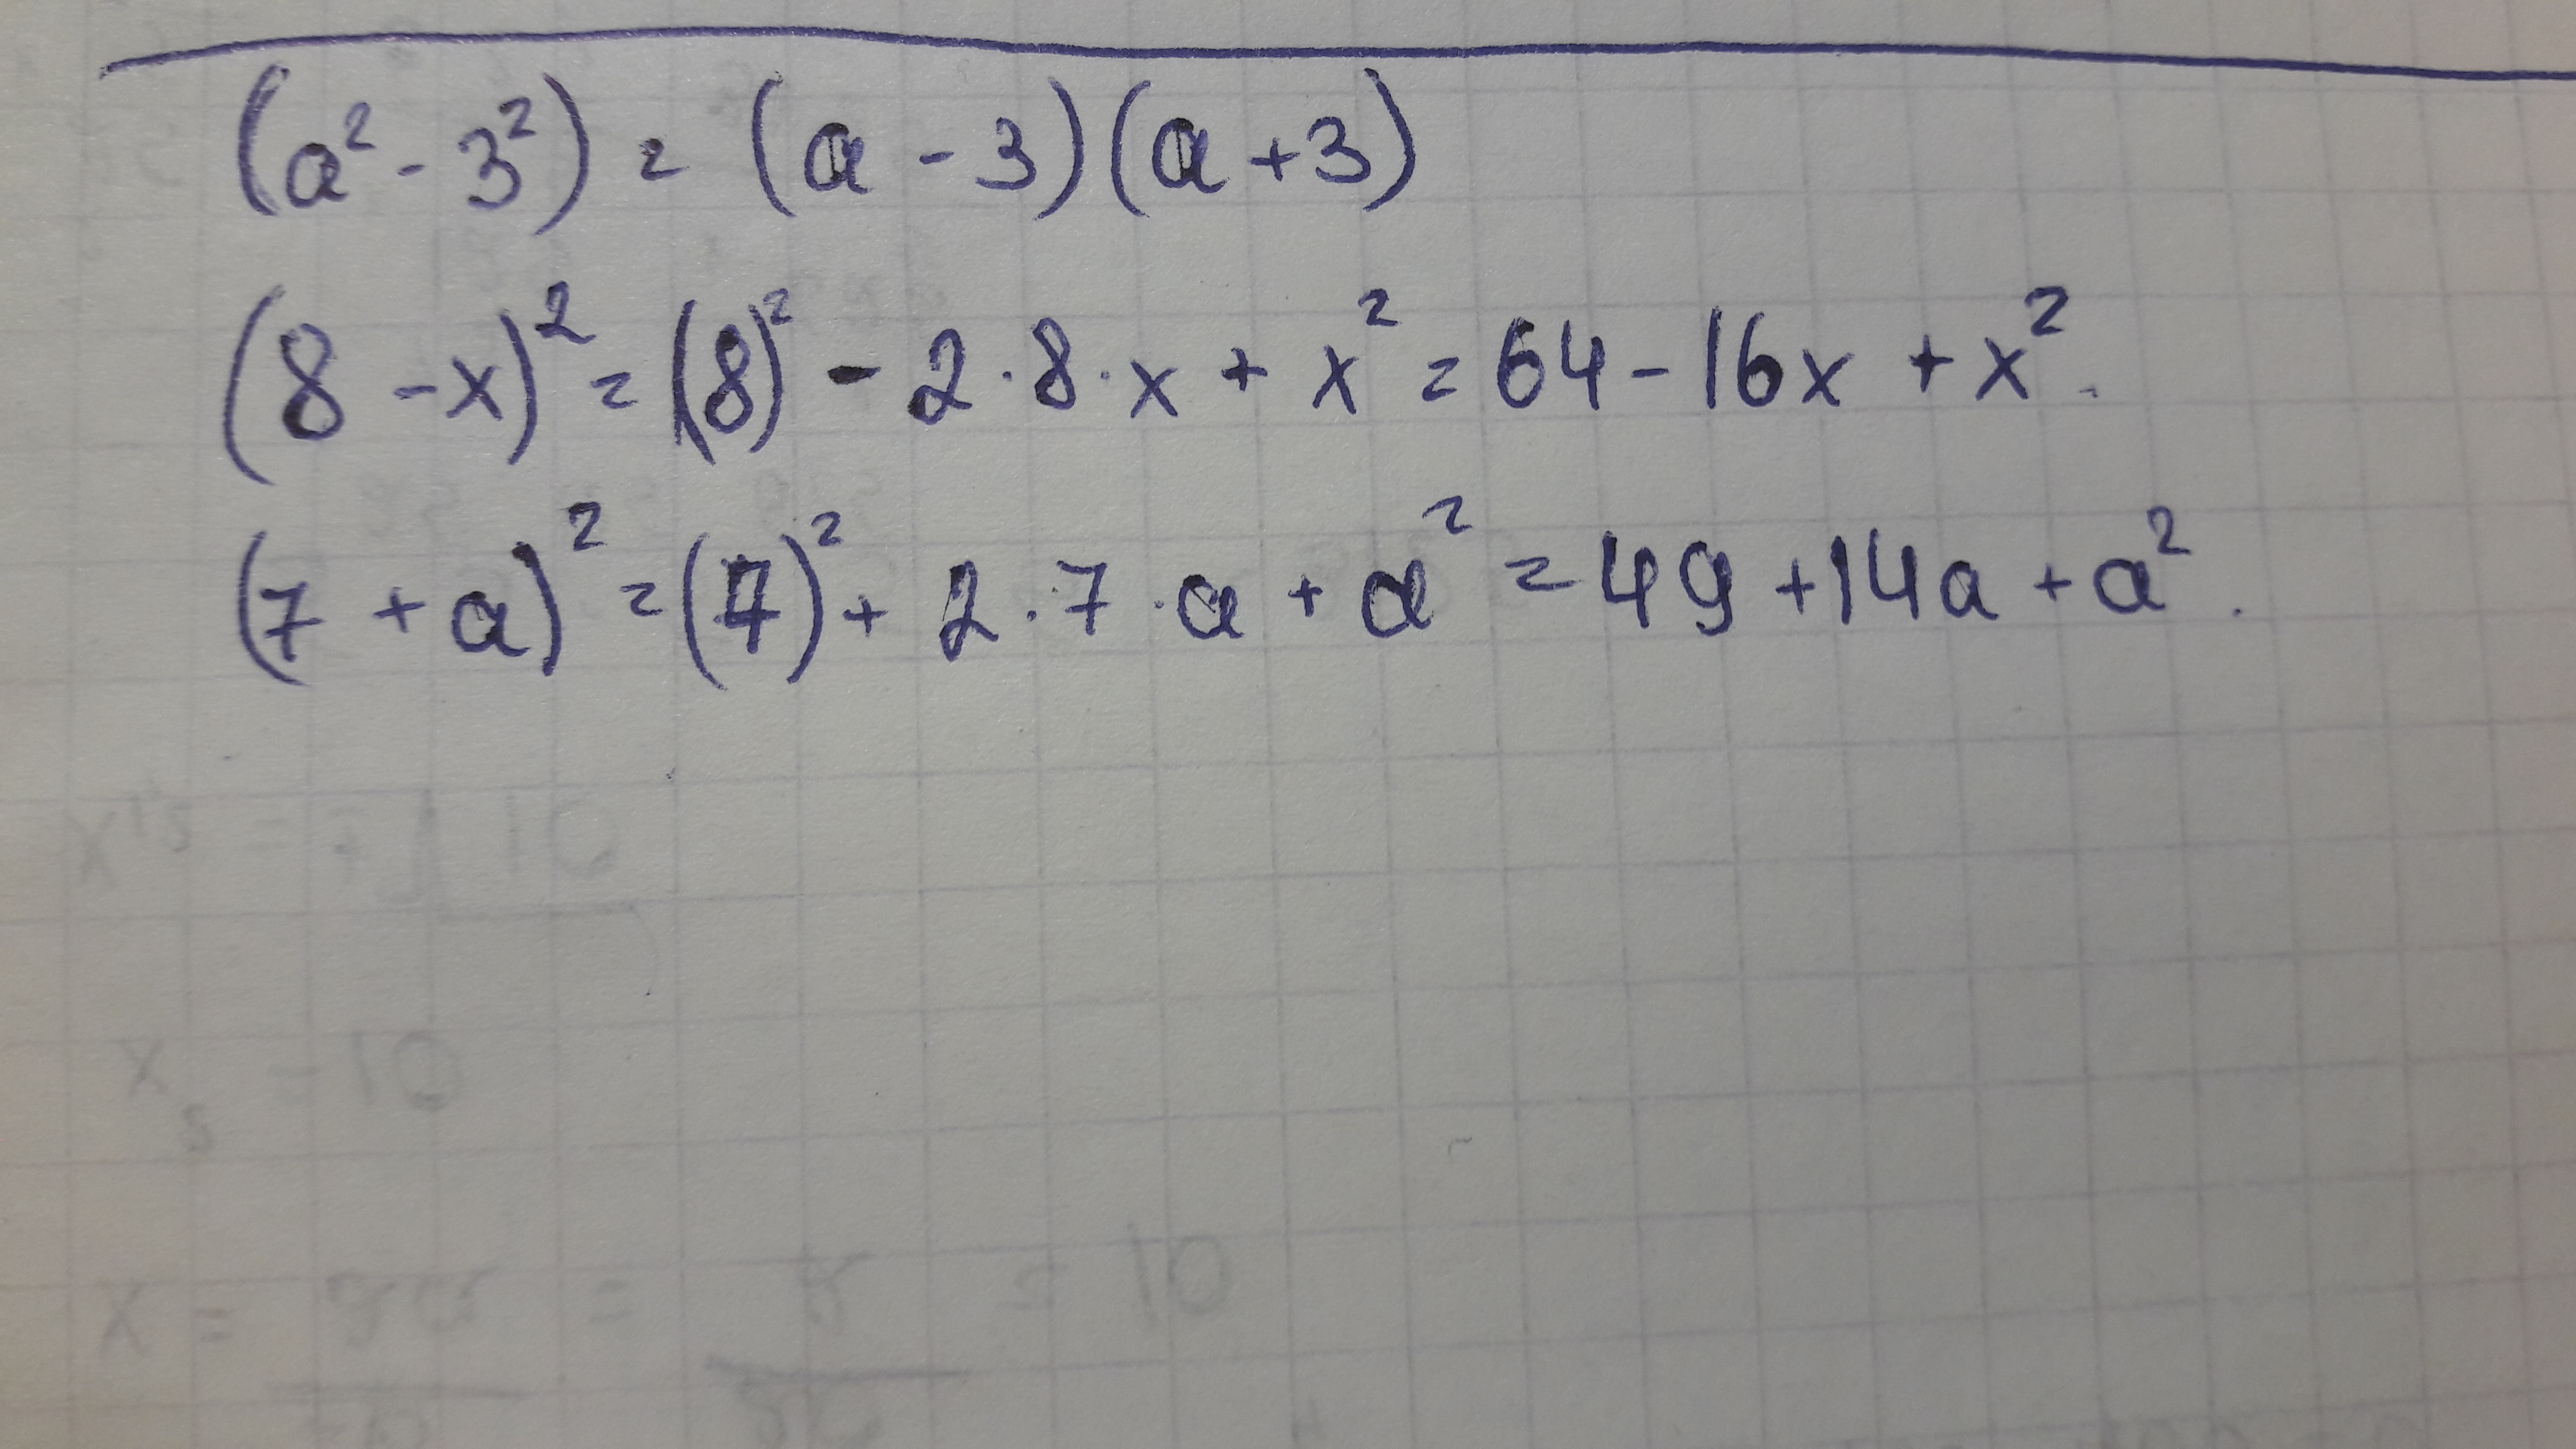 (a² - 3²) = (a - 3)(a + 3)
(8 - x)² = (8)² - 2 · 8 · x + x² = 64 - 16x + x².
(7 + a)² = (7)² + 2 · 7 · a + a² = 49 + 14a + a².